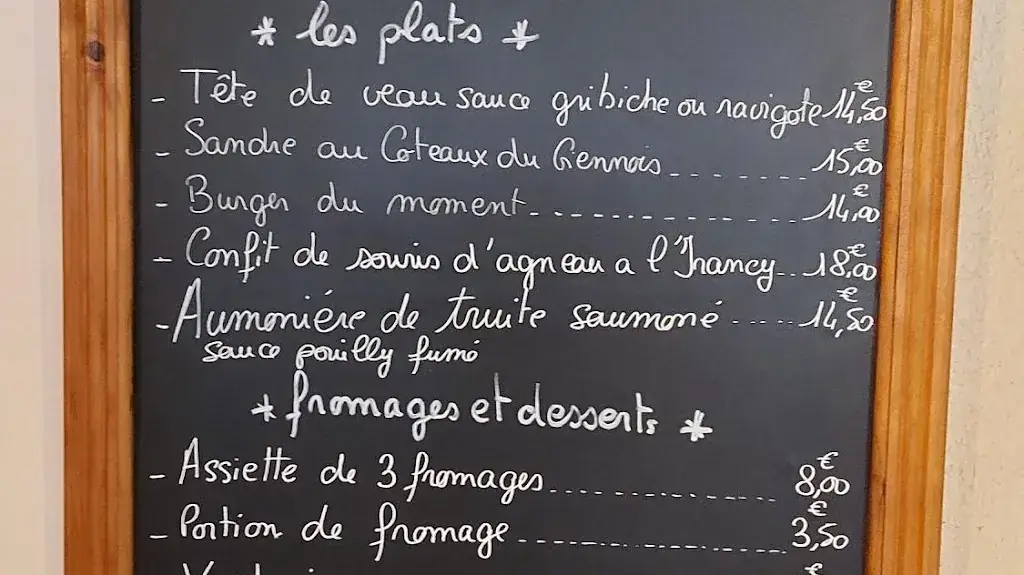 * les plats *
- Tête de veau sauce gribiche ou navigote 14,50€
- Sandre au Coteaux du Giennois 15,00€
- Burger du moment 14,00€
- Confit de souris d'agneau a l'Irancy 18,00€
- Aumoniére de truite saumoné 14,50€
sauce pouilly fumé
* fromages et desserts *
- Assiette de 3 fromages 8,00€
- Portion de fromage 3,50€